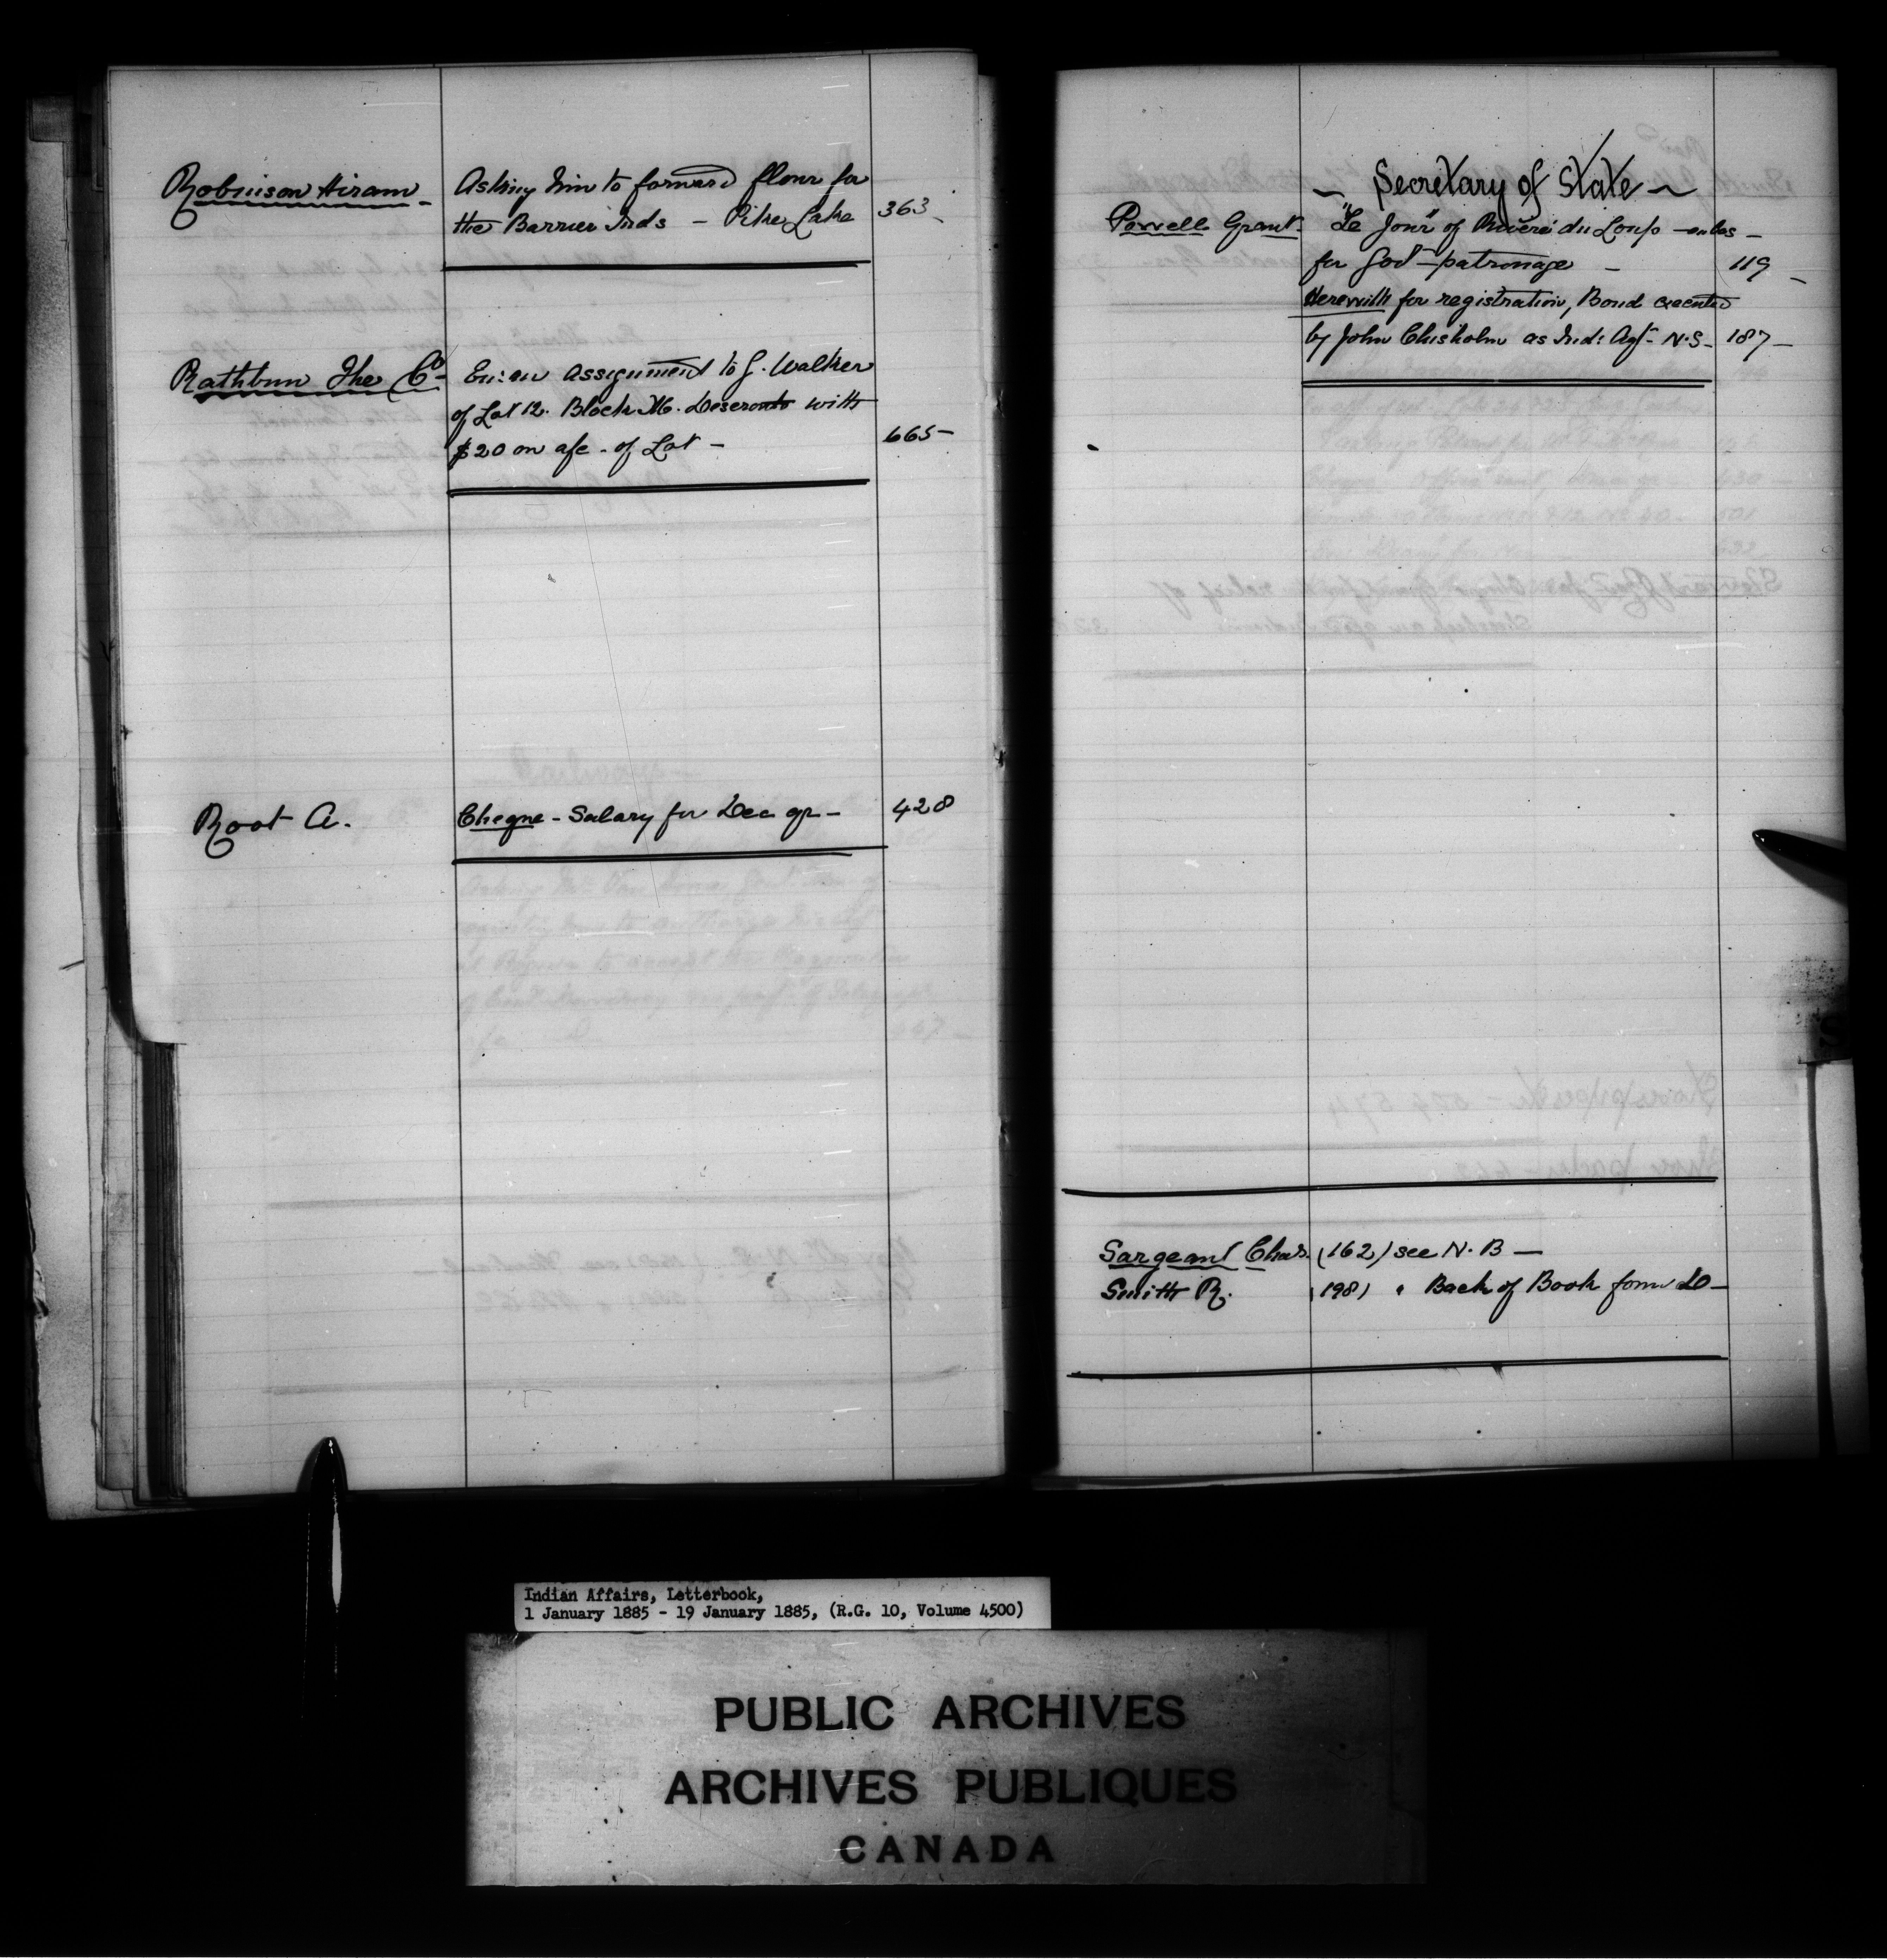 Robinson Hiram - Asking him to forward flour for
the Barrier Inds - Pike Lake 363 -
Rathbun The Co - assignment to G. Walker
of Lot 12. Block M. Deseronto with
$20 on a/c. of Lot - 665 -
Root A. Cheque - Salary for Dec qr - 428
~ Secretary of State ~
Powell Grant. "Le Jour" of Rivière du Loup -
for Govt patronage - 119 -
Herewith for registration, Bond executed
by John Chisholm as Ind: Agt - N.S - 187 -
Sargeant Chas. (162) see N.B -
Smith R. (198) " Back of Book form D -
S
Indian Affairs, Letterbook,
1 January 1885 - 19 January 1885, (R.G. 10, Volume 4500)
PUBLIC ARCHIVES
ARCHIVES PUBLIQUES
CANADA